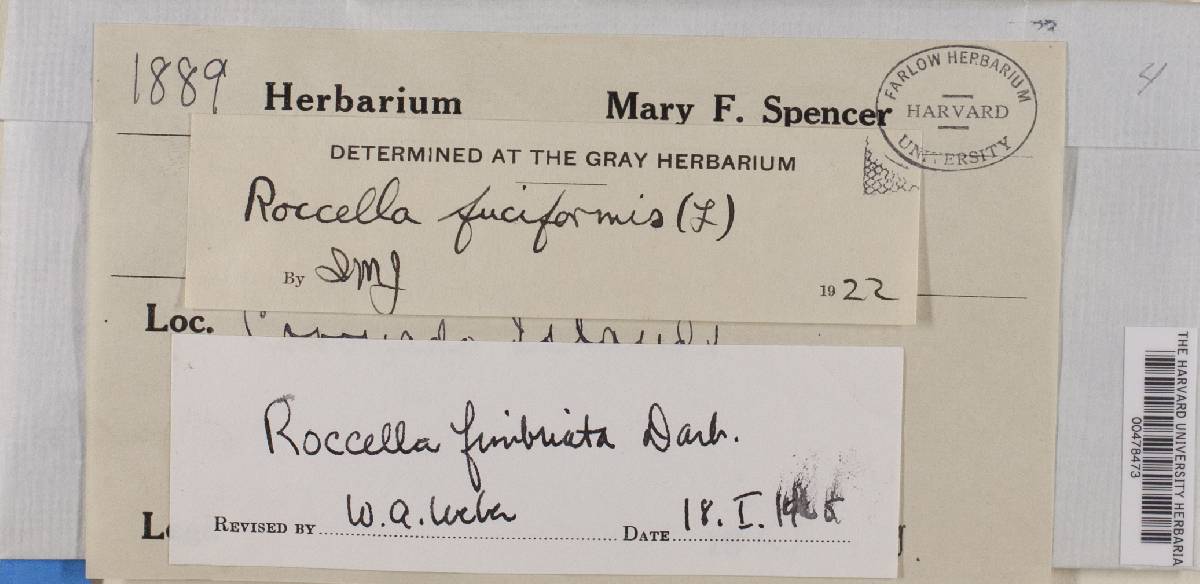 4
1889 Herbarium Mary F. Spencer
FARLOW HERBARIUM
HARVARD
UNIVERSITY
DETERMINED AT THE GRAY HERBARIUM
Roccella fuciformis (L)
By IMJ 1922
Loc.
Roccella fimbriata Darb.
REVISED BY W.A. Weber DATE 18. I.
THE HARVARD UNIVERSITY HERBARIA
00478473